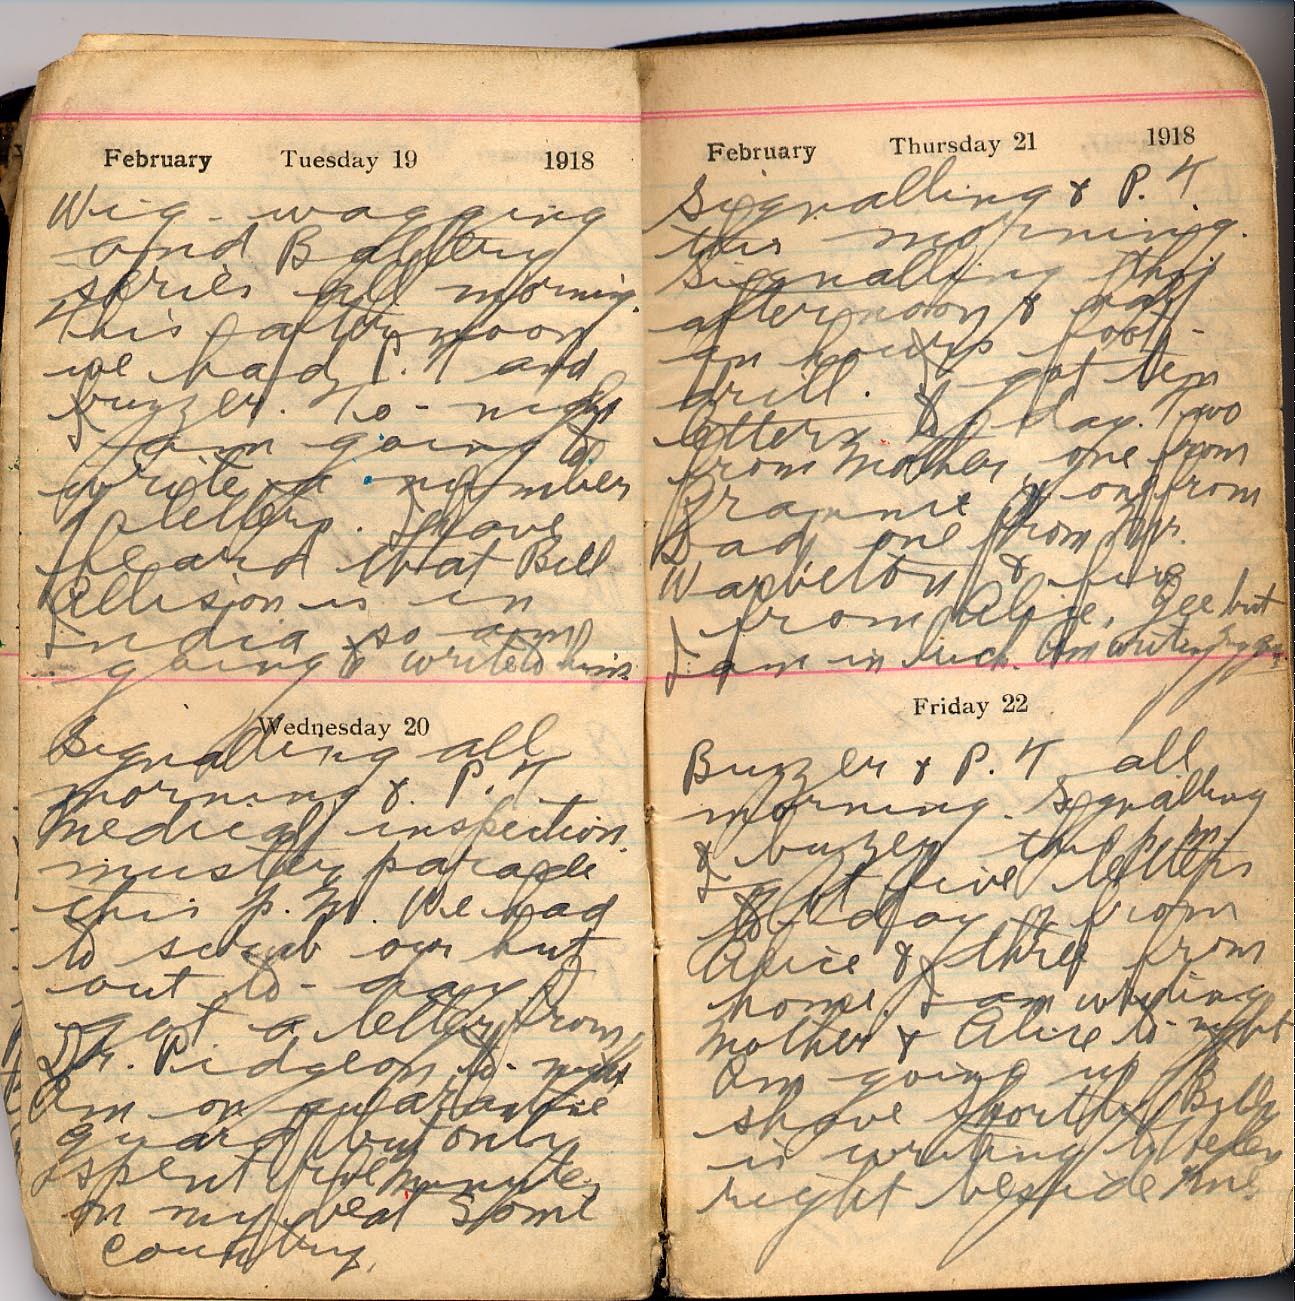 February Tuesday 19 1918
Wig-wagging
and Battery
series all morning.
This afternoon
we had P.T and
buzzer. To-night
I am going to
write a number
of letters. I have
heard that Bill
Allison is in
India so am
going to write to him.
Wednesday 20
Signalling all
morning & P.T
Medical inspection
muster parade
this P.M. We had
to scrub our hut
out to-day. I
got a letter from
Dr. Pidgeon to-night
Am on quarantine
guard but only
spent five minutes
on my beat Some
country.
February Thursday 21 1918
Signalling & P.T
this morning.
Signalling this
afternoon & half
an hours foot-
drill. I got ten
letters to day. Two
from Mother, one from
Grannie & one from
Dad one from Mrs.
Warbelton & five
from Alice. Gee but
I am in luck. Am writing
Friday 22
Buzzer & P.T all
morning. Signalling
& buzzer this p.m.
I got five letters
to day 2 from
Alice & three from
home. I am writing
Mother & Alice to-night
Am going up to
shave shortly. Bill
is writing to Helen
right beside me.